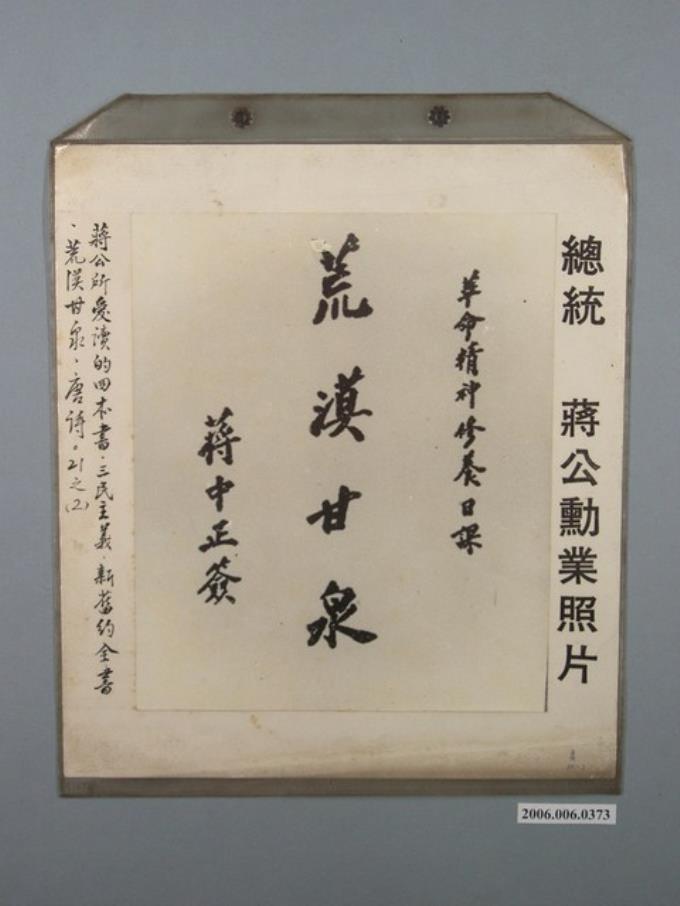 總統 蔣公勳業照片
革命精神修養日課
荒漠甘泉
蔣中正簽
蔣公所愛讀的四本書、三民主義、新舊約全書
、荒漠甘泉、唐詩。21之(2)
2006.006.0373